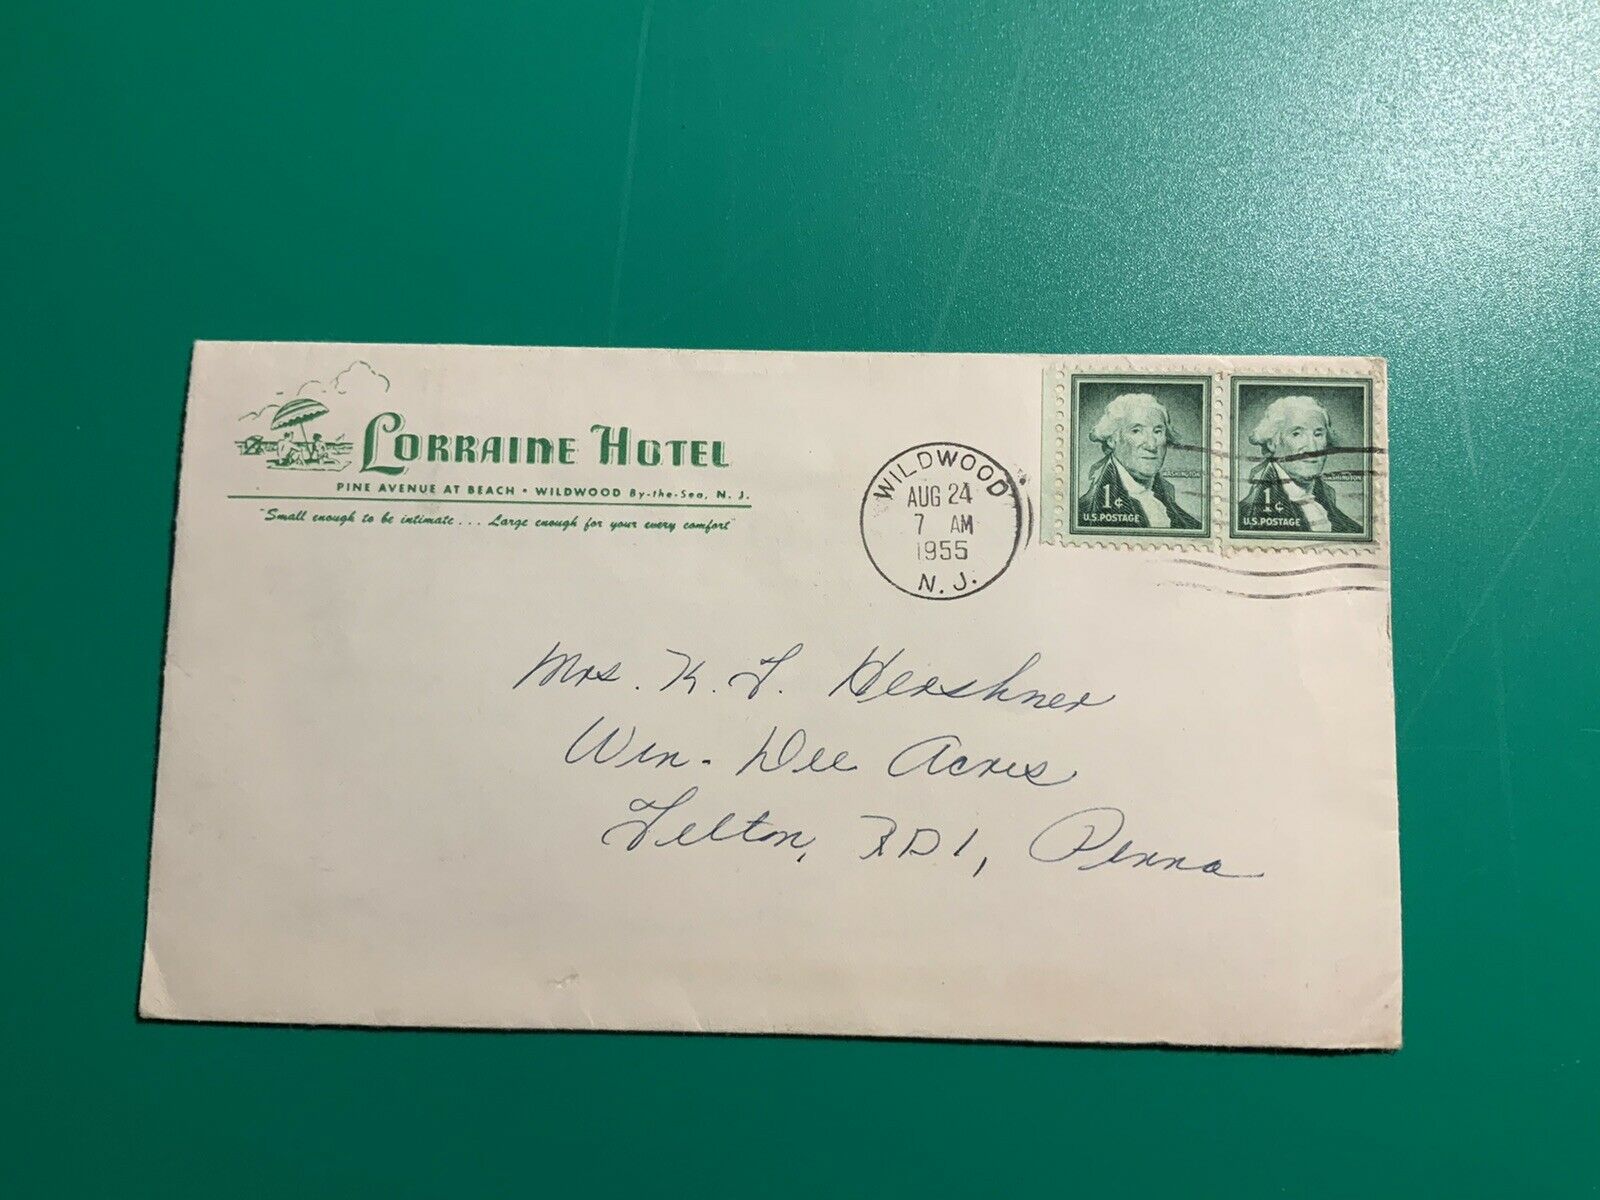 LORRAINE HOTEL
PINE AVENUE AT BEACH • WILDWOOD By-the-Sea, N. J.
"Small enough to be intimate... Large enough for your every comfort"
WILDWOOD
AUG 24
7 AM
1955
N. J.
WASHINGTON
1¢
U.S. POSTAGE
WASHINGTON
1¢
U.S. POSTAGE
Mrs. K. F. Hershner
Win-Dee Acres
Felton, RD1, Penna